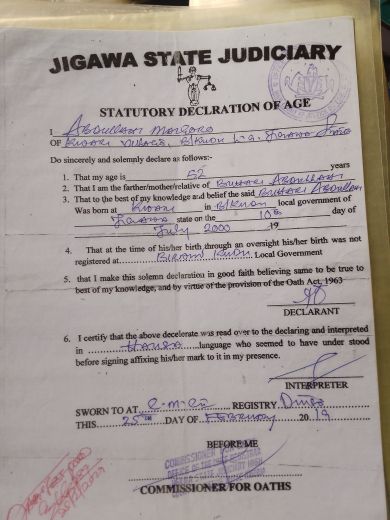 JIGAWA STATE JUDICIARY
STATUTORY DECLRATION OF AGE
I Abdullahi
OF Village, B/Kudu L.G. Jigawa State
Do sincerely and solemnly declare as follows:-
1. That my age is 52 years
2. That I am the farther/mother/relative of Buhari Abdullahi
3. That to the best of my knowledge and belief the said Buhari Abdullahi
Was born at in B/Kudu local government of
Jigawa state on the 10th day of
July 2000 19
4. That at the time of his/her birth through an oversight his/her birth was not
registered at Birnin Kudu Local Government
5. that I make this solemn declaration in good faith believing same to be true to
best of my knowledge, and by virtue of the provision of the Oath Act, 1963
DECLARANT
6. I certify that the above decelerate was read over to the declaring and interpreted
in Hausa language who seemed to have under stood
before signing affixing his/her mark to it in my presence.
INTERPRETER
SWORN TO AT REGISTRY Dutse
THIS 25th DAY OF February 2019
BEFORE ME
COMMISSIONER FOR OATHS